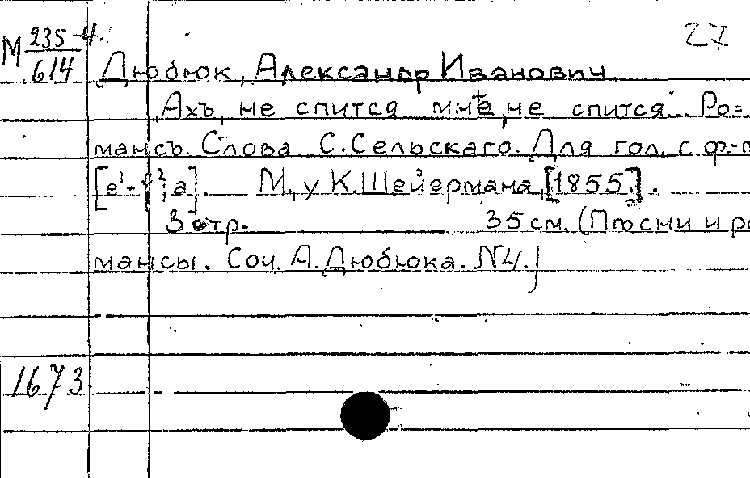 27
М 235-4
614
Дюбюк, Александр Иванович
Ахъ, не спится мнѣ, не спится. Ро=
мансъ. Слова С. Сельскаго. Для гол. с ф.-п
а]. М, у К. Шейермана, [1855].
3 стр. 35 см. (Пѣсни и ро
мансы. Соч. А. Дюбюка. N4.)
1673